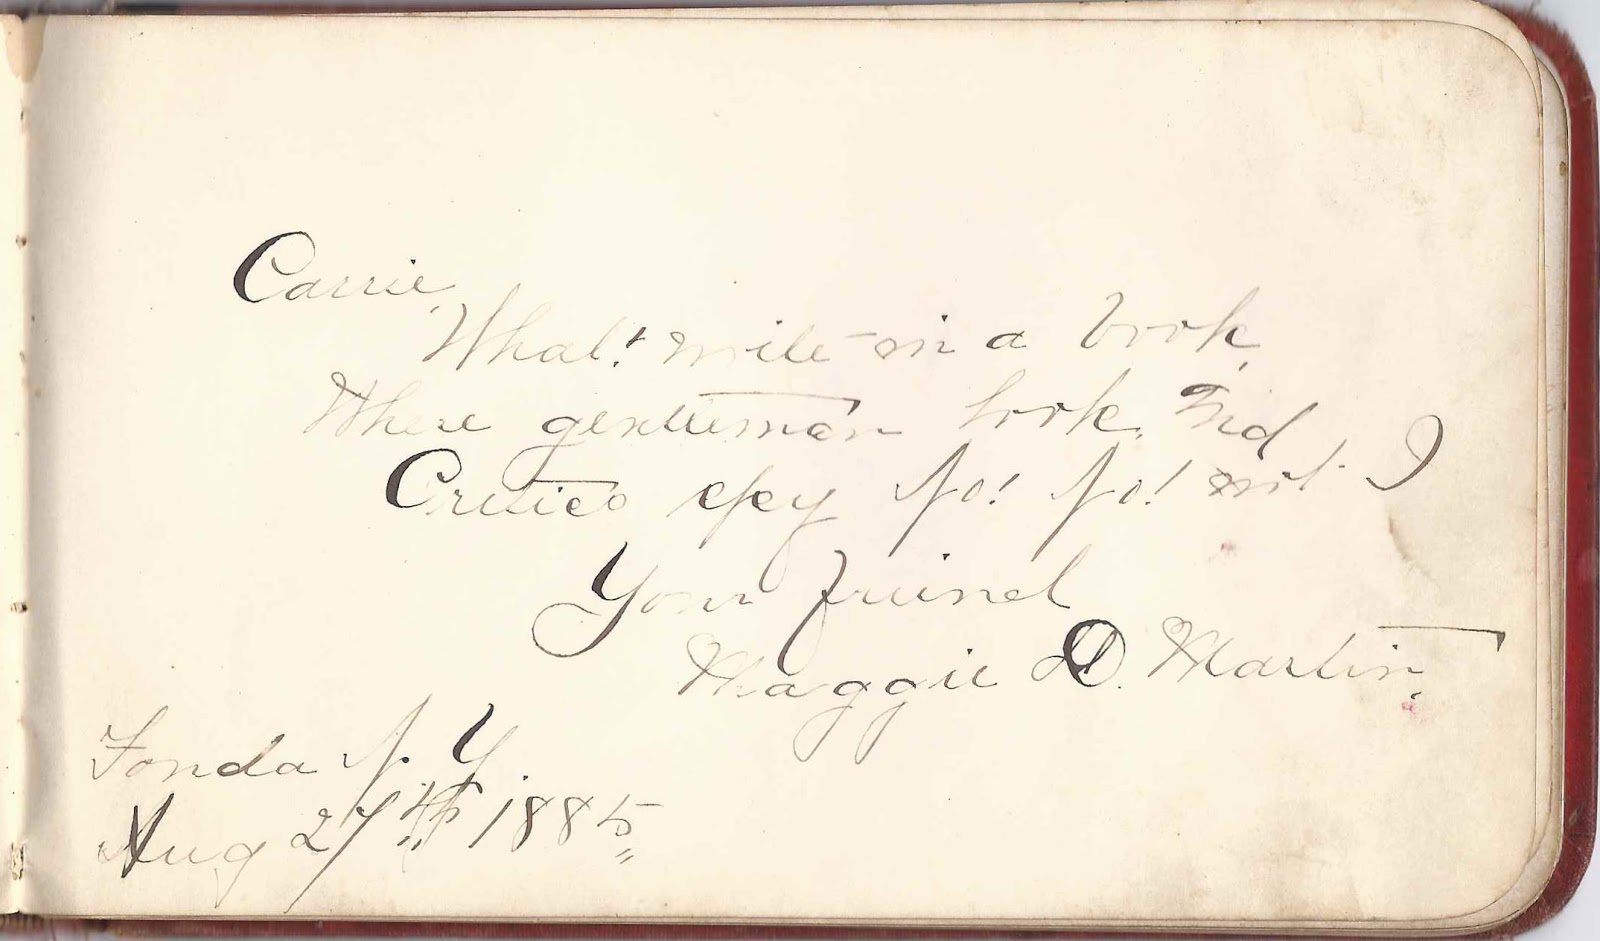 Carrie,
What! write in a book,
Where gentleman look, And
Critics spy No! No! not I
Your freind
Maggie D. Martin.
Fonda N. Y.
Aug 27th 1885